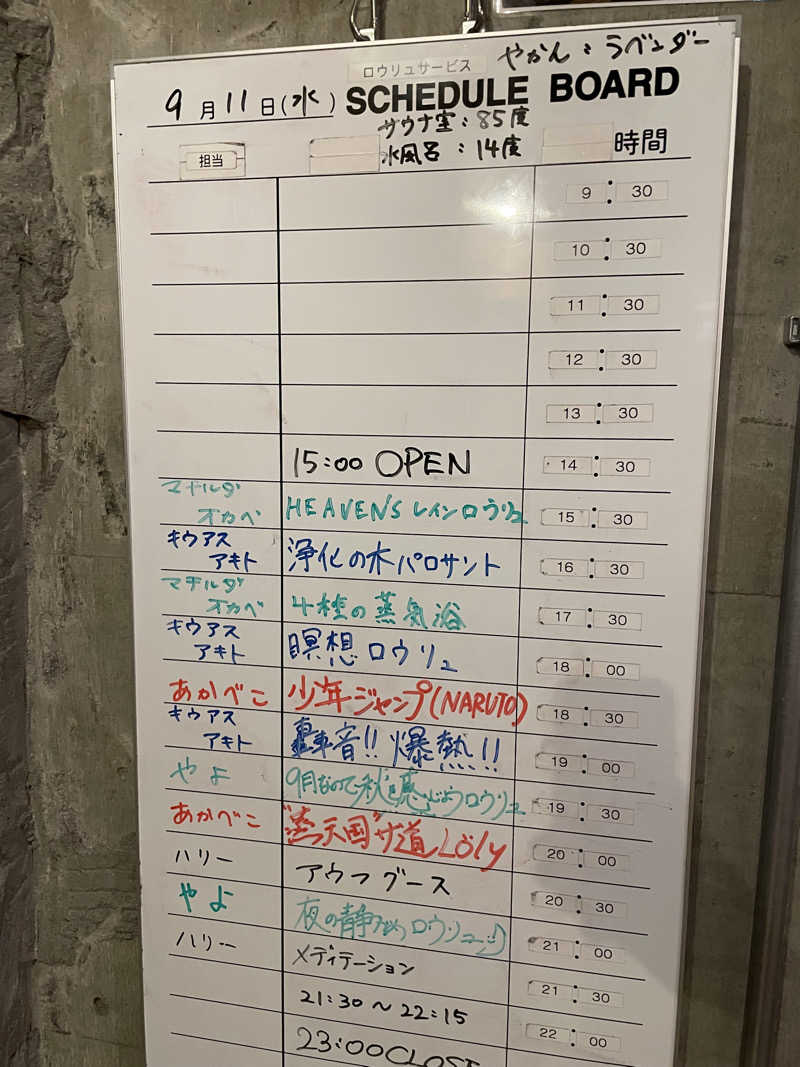 やかん：ラベンダー
ロウリュサービス
9月11日(水) SCHEDULE BOARD
サウナ室：85度
水風呂：14度
担当 時間
9：30
10：30
11：30
12：30
13：30
15:00 OPEN 14：30
マチルダ オカベ HEAVENS レインロウリュ 15：30
キウアス アキト 浄化の木パロサント 16：30
マチルダ オカベ 4種の蒸気浴 17：30
キウアス アキト 瞑想ロウリュ 18：00
あかべこ 少年ジャンプ(NARUTO) 18：30
キウアス アキト 轟音!!爆熱!! 19：00
やよ 9月なので秋を感じようロウリュ 19：30
あかべこ "蒸天国"サ道Löly 20：00
ハリー アウフグース 20：30
やよ 夜の静かロウリュ 21：00
ハリー メディテーション 21：30
21:30〜22:15 22：00
23:00CLOSE